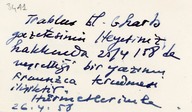 Trablus
gazetesinin Heyetiniz
hakkında 20/4/58 de
neşrettiği bir yazının
Fransızca tercümesi
ilişiktir.
Hürmetlerimle
26.4.58